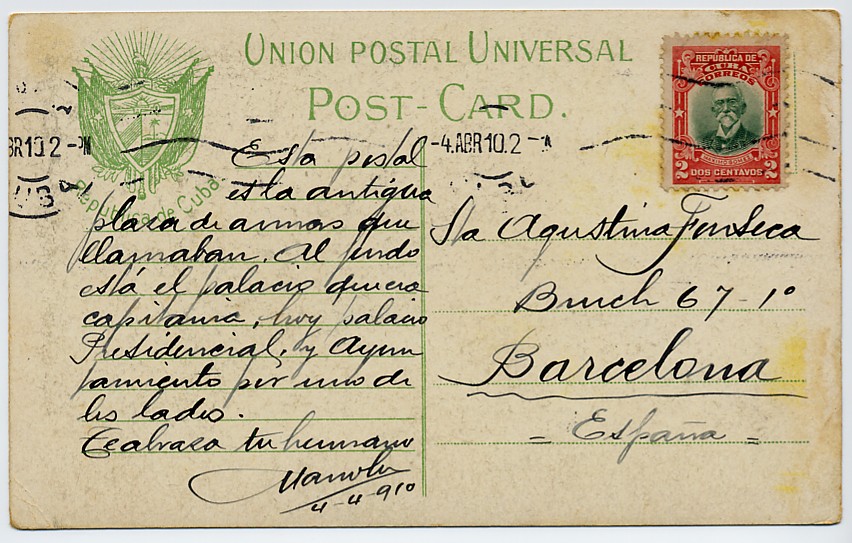 UNION POSTAL UNIVERSAL
POST-CARD.
República de Cuba
REPÚBLICA DE
CUBA
CORREOS
MAXIMO GOMEZ
2 2
DOS CENTAVOS
BR10.2-PM
-4.ABR10.2-
Esta postal
es la antigua
plaza de armas que
llamaban. Al fondo
está el palacio que era
capitania, hoy palacio
Presidencial, y Ayun
tamiento por uno de
los lados.
Te abraza tu hermano
Manolo
4-4-910
Sta Agustina Fonseca
Bruch 67-1º
Barcelona
= España =